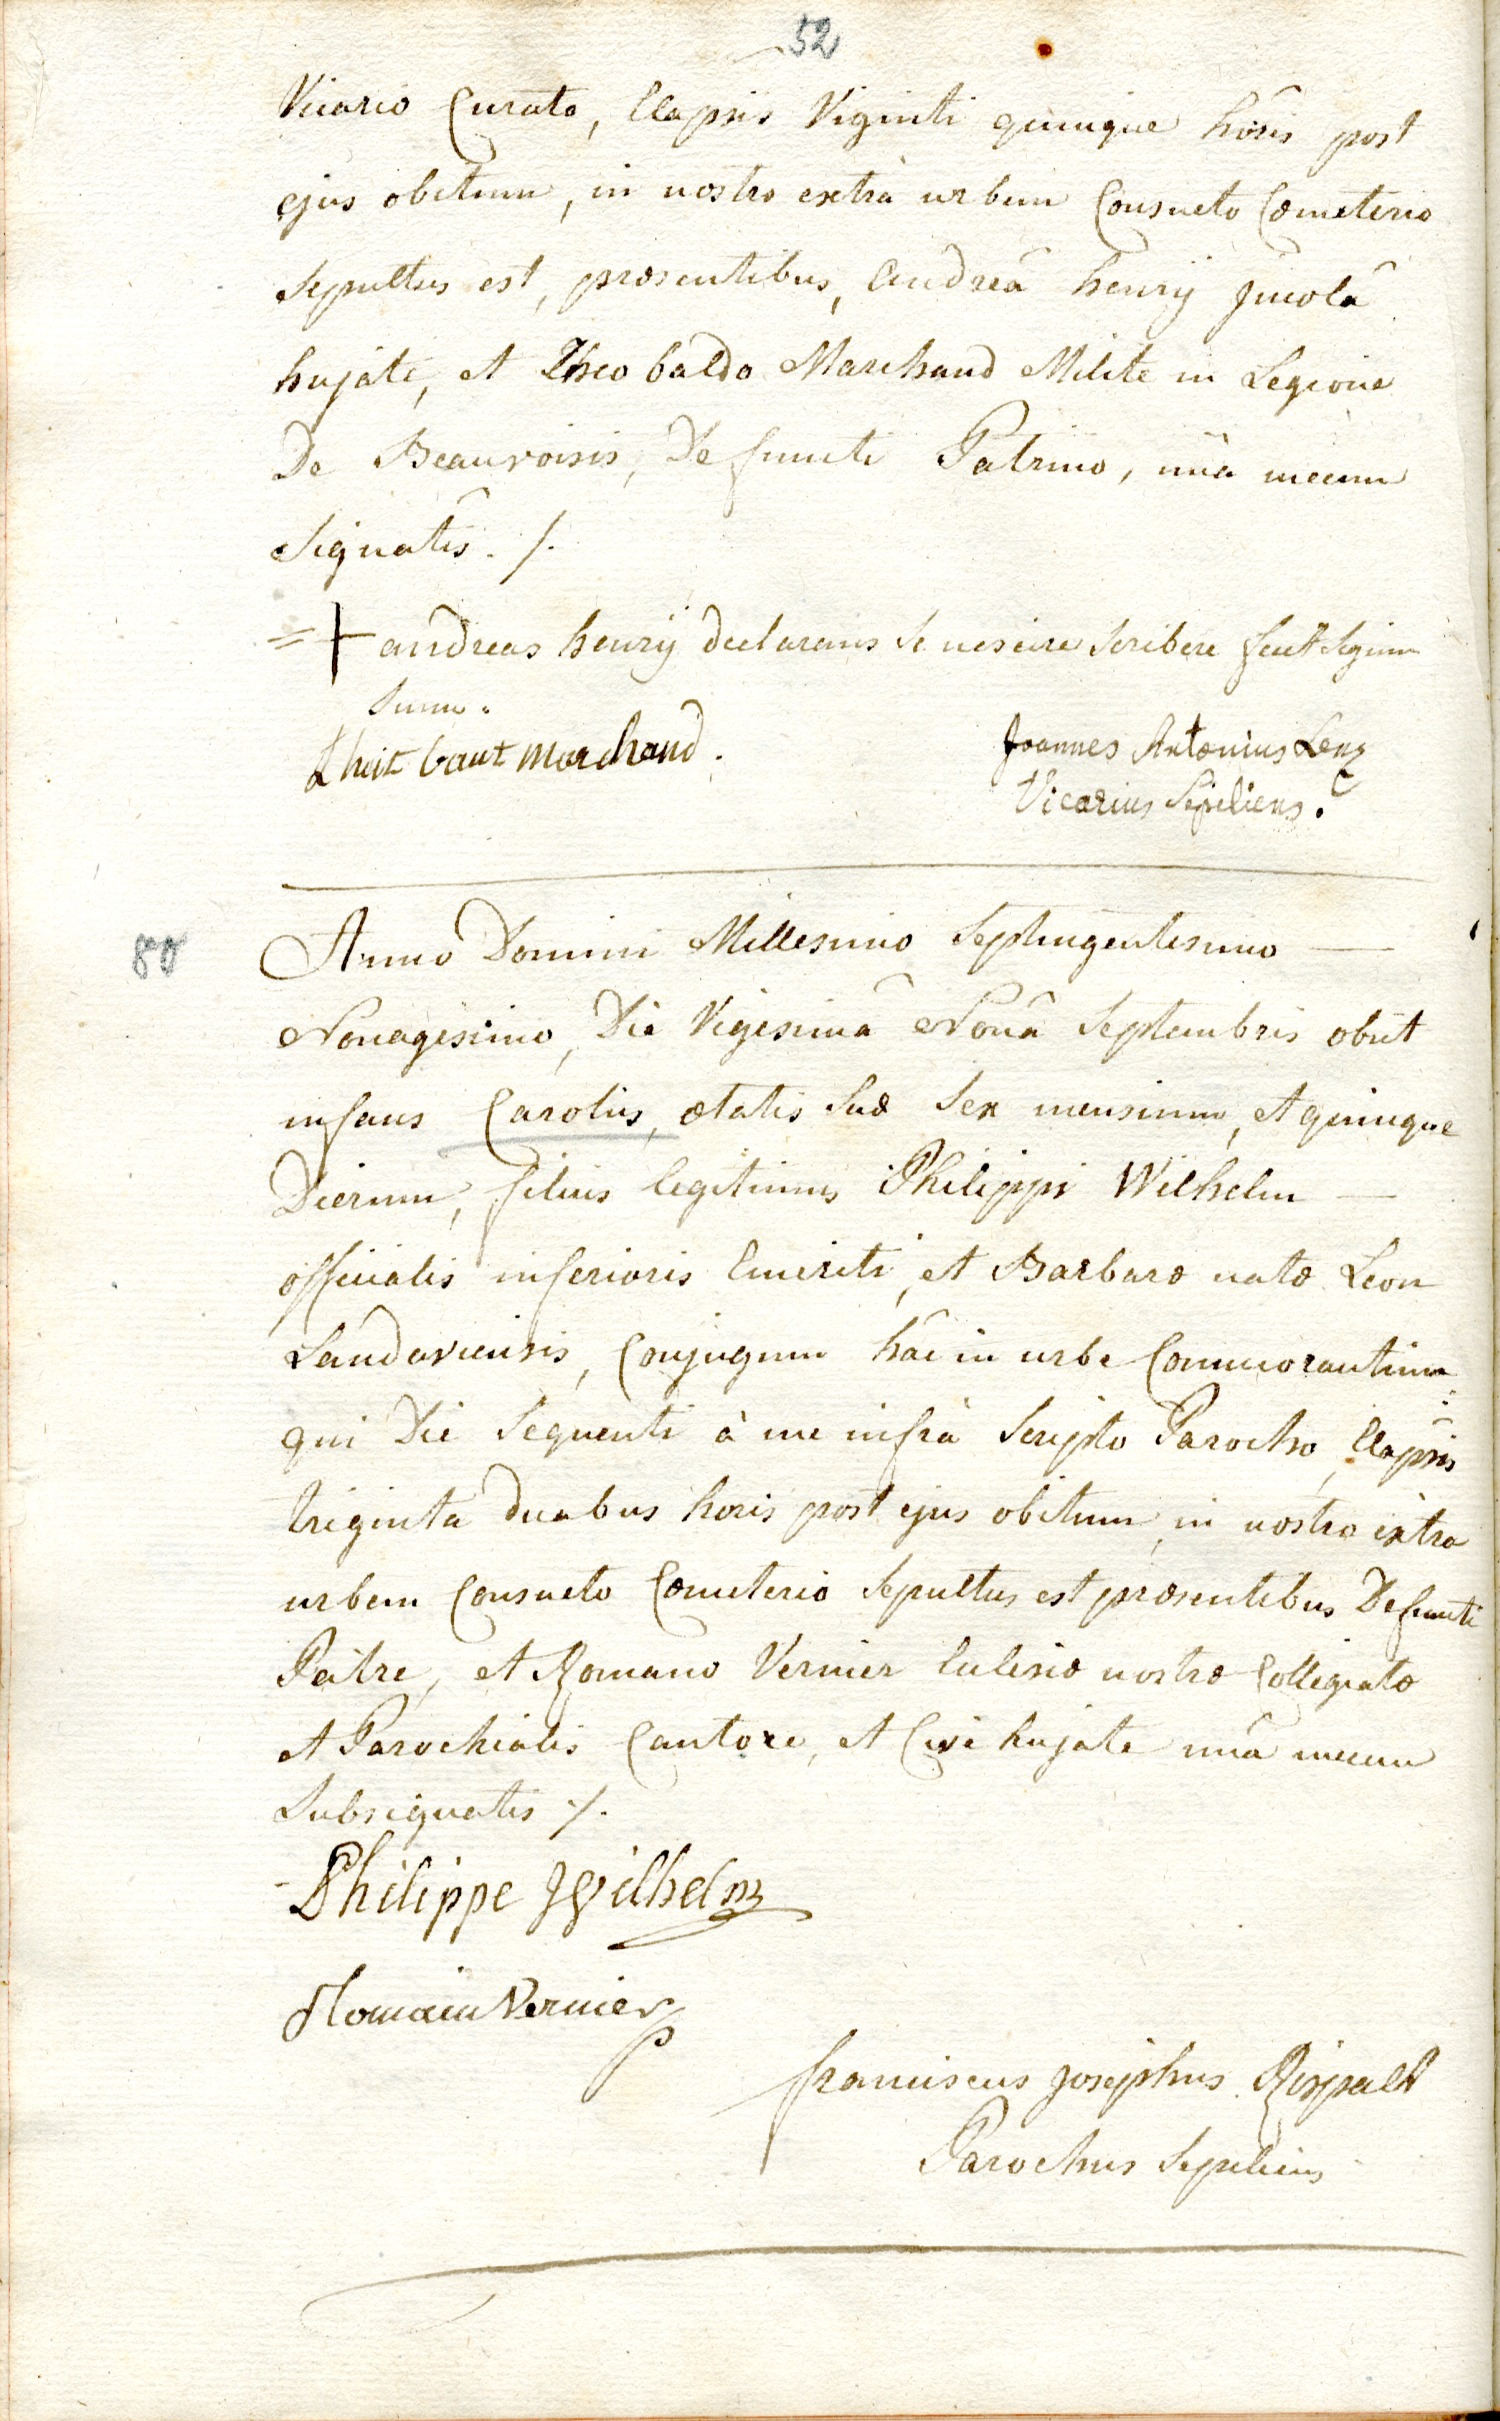 52
Vicario Curato, Elapsis Viginti quinque horis post
ejus obitum, in nostro extrà urbem Consueto Cœmeterio
Sepultus est, præsentibus, Andreâ henrÿ Jncolâ
hujate, et Theobaldo Marchand Milite in Legione
De Beauvoisis, Defuncti Patrino, unâ mecum
Signatis ./.
= + andreas henrÿ declarans se nescire scribere fecit signum
suum.
theit baut marchand.
Joannes Antonius Lenz
Vicarius Sepeliens.
80
Anno Domini Millesimo Septingentesimo —
Nonagesimo, Die Vigesimâ Nonâ Septembris obiit
infans Carolus, ætatis suæ sex mensium, et quinque
Dierum, filius legitimus Philippi Wilhelm —
officialis inferioris Emeriti, et Barbaræ natæ Leon
Landaviensis, Conjugum hâc in urbe Commorantium
qui Die Sequenti à me infrà Scripto Parocho, Elapsis
triginta duabus horis post ejus obitum, in nostro extra
urbem Consueto Cœmeterio Sepultus est præsentibus Defuncti
Patre, et Romano Vernier Eclesiæ nostræ Collegiatæ
et Parochialis Cantore, et Cive hujate unâ mecum
Subsignatis ./.
Philippe Wilhelm
Romain Vernier
franciscus josephus Rispalt
Parochus Sepeliens